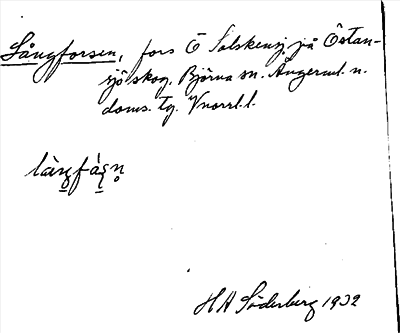 Långforsen, fors Ö Solskensj. på Östan-
sjö skog. Björna sn. Ångerml. n.
doms. tg. Vnorrl. l.
H A Söderberg 1932